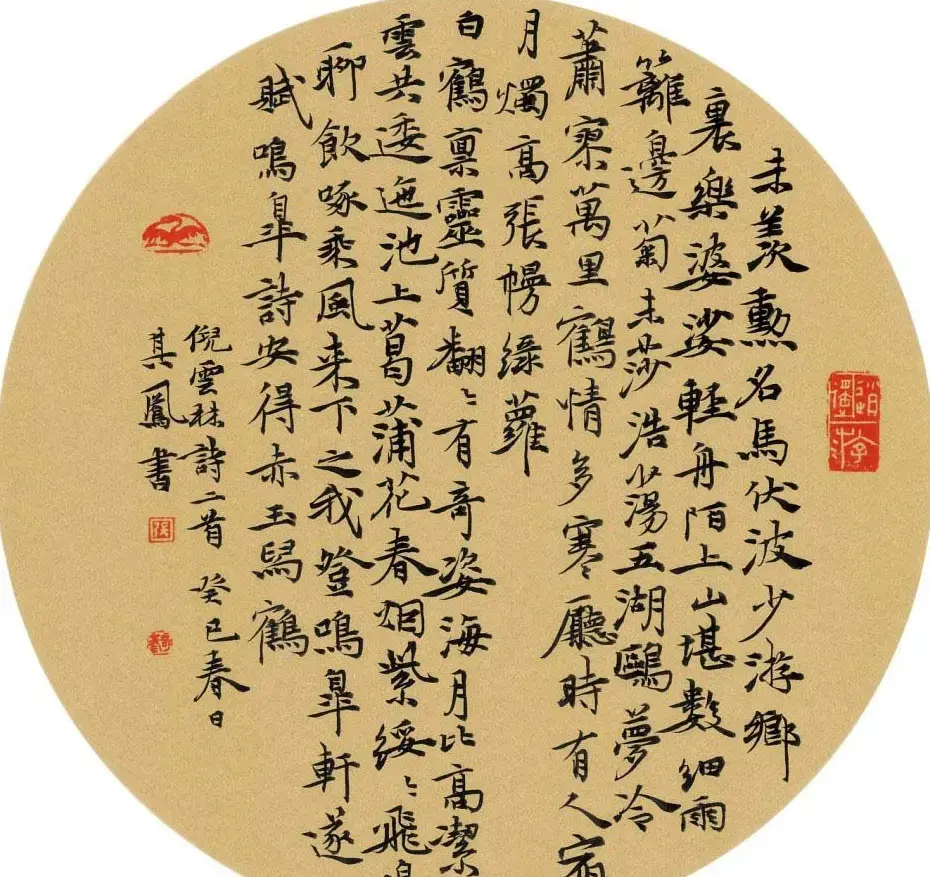 未羡勲名馬伏波少游鄉
裏樂婆娑輕舟陌上山堪數細雨
籬邊菊未莎浩蕩五湖鷗夢冷
蕭寥萬里鶴情多寒廳時有人宿
月燭高張幔綠蘿
白鶴稟靈質翩〻有奇姿海月比高潔
雲共逶迤池上菖蒲花春烟紫綏〻飛
聊飲啄乘風来下之我登鳴皐軒遂
賦鳴皐詩安得赤玉舄鶴
倪雲林詩二首 癸巳春日
其鳳書
逍遙游